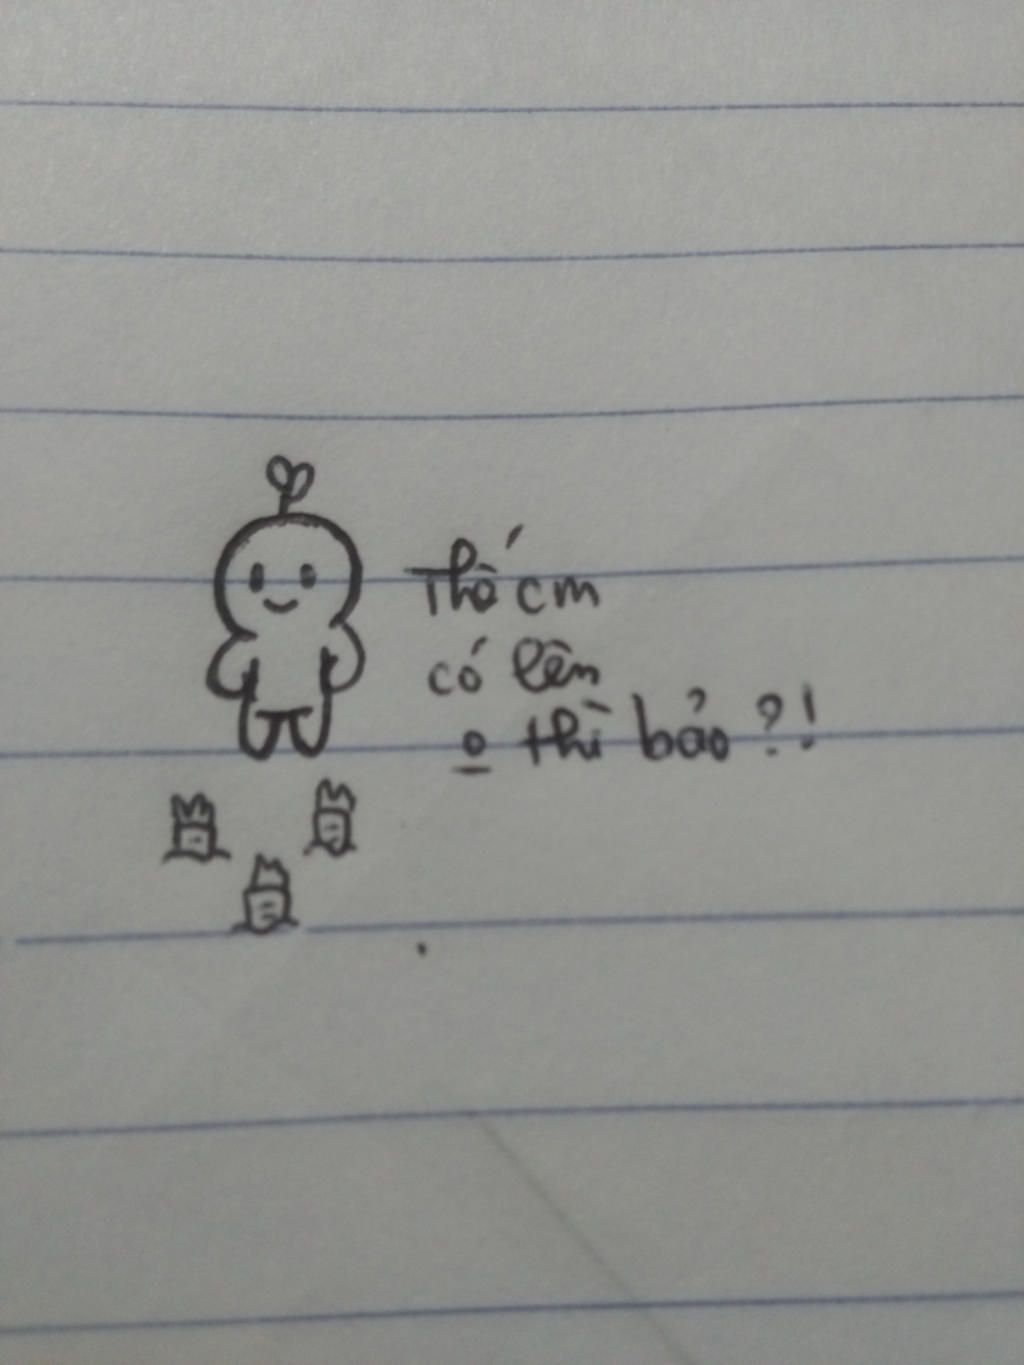 Thế cm
có lên
o thì bảo?!